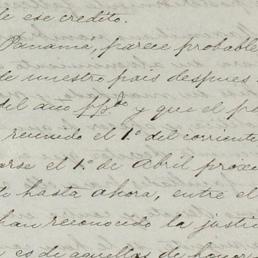 de ese credito.
Panamá, parece probable
de nuestro pais despues
del año ppdo y que el pe
reunido el 1º del corriente
arse el 1º de Abril próx
hasta ahora, entre el
han reconocido la justic
es de aquellas de honor